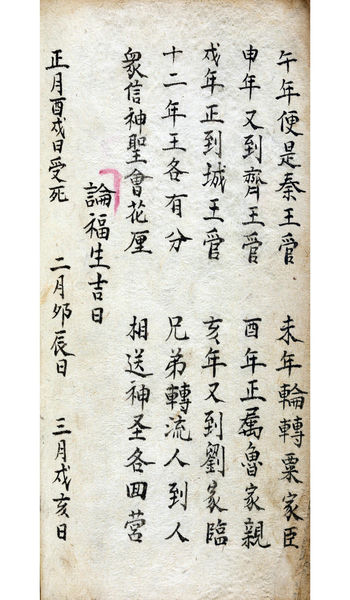 午年便是秦王管　未年輪轉粟家臣
申年又到齊王管　酉年正属魯家親
戌年正到城王管　亥年又到劉家臨
十二年王各有分　兄弟轉流人到人
衆信神聖會花厘　相送神圣各回营
論福生吉日
正月酉戌日受死　二月夘辰日　三月戍亥日